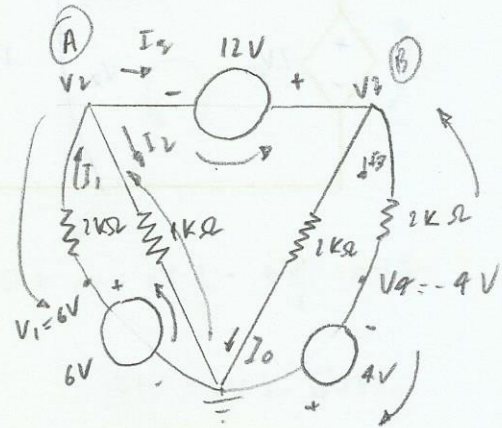 A
I
12V
B
V2
-
+
V3
I2
I1
I3
2KΩ
1KΩ
2KΩ
2KΩ
V1=6V
+
V4=-4V
-
6V
-
I0
4V
+